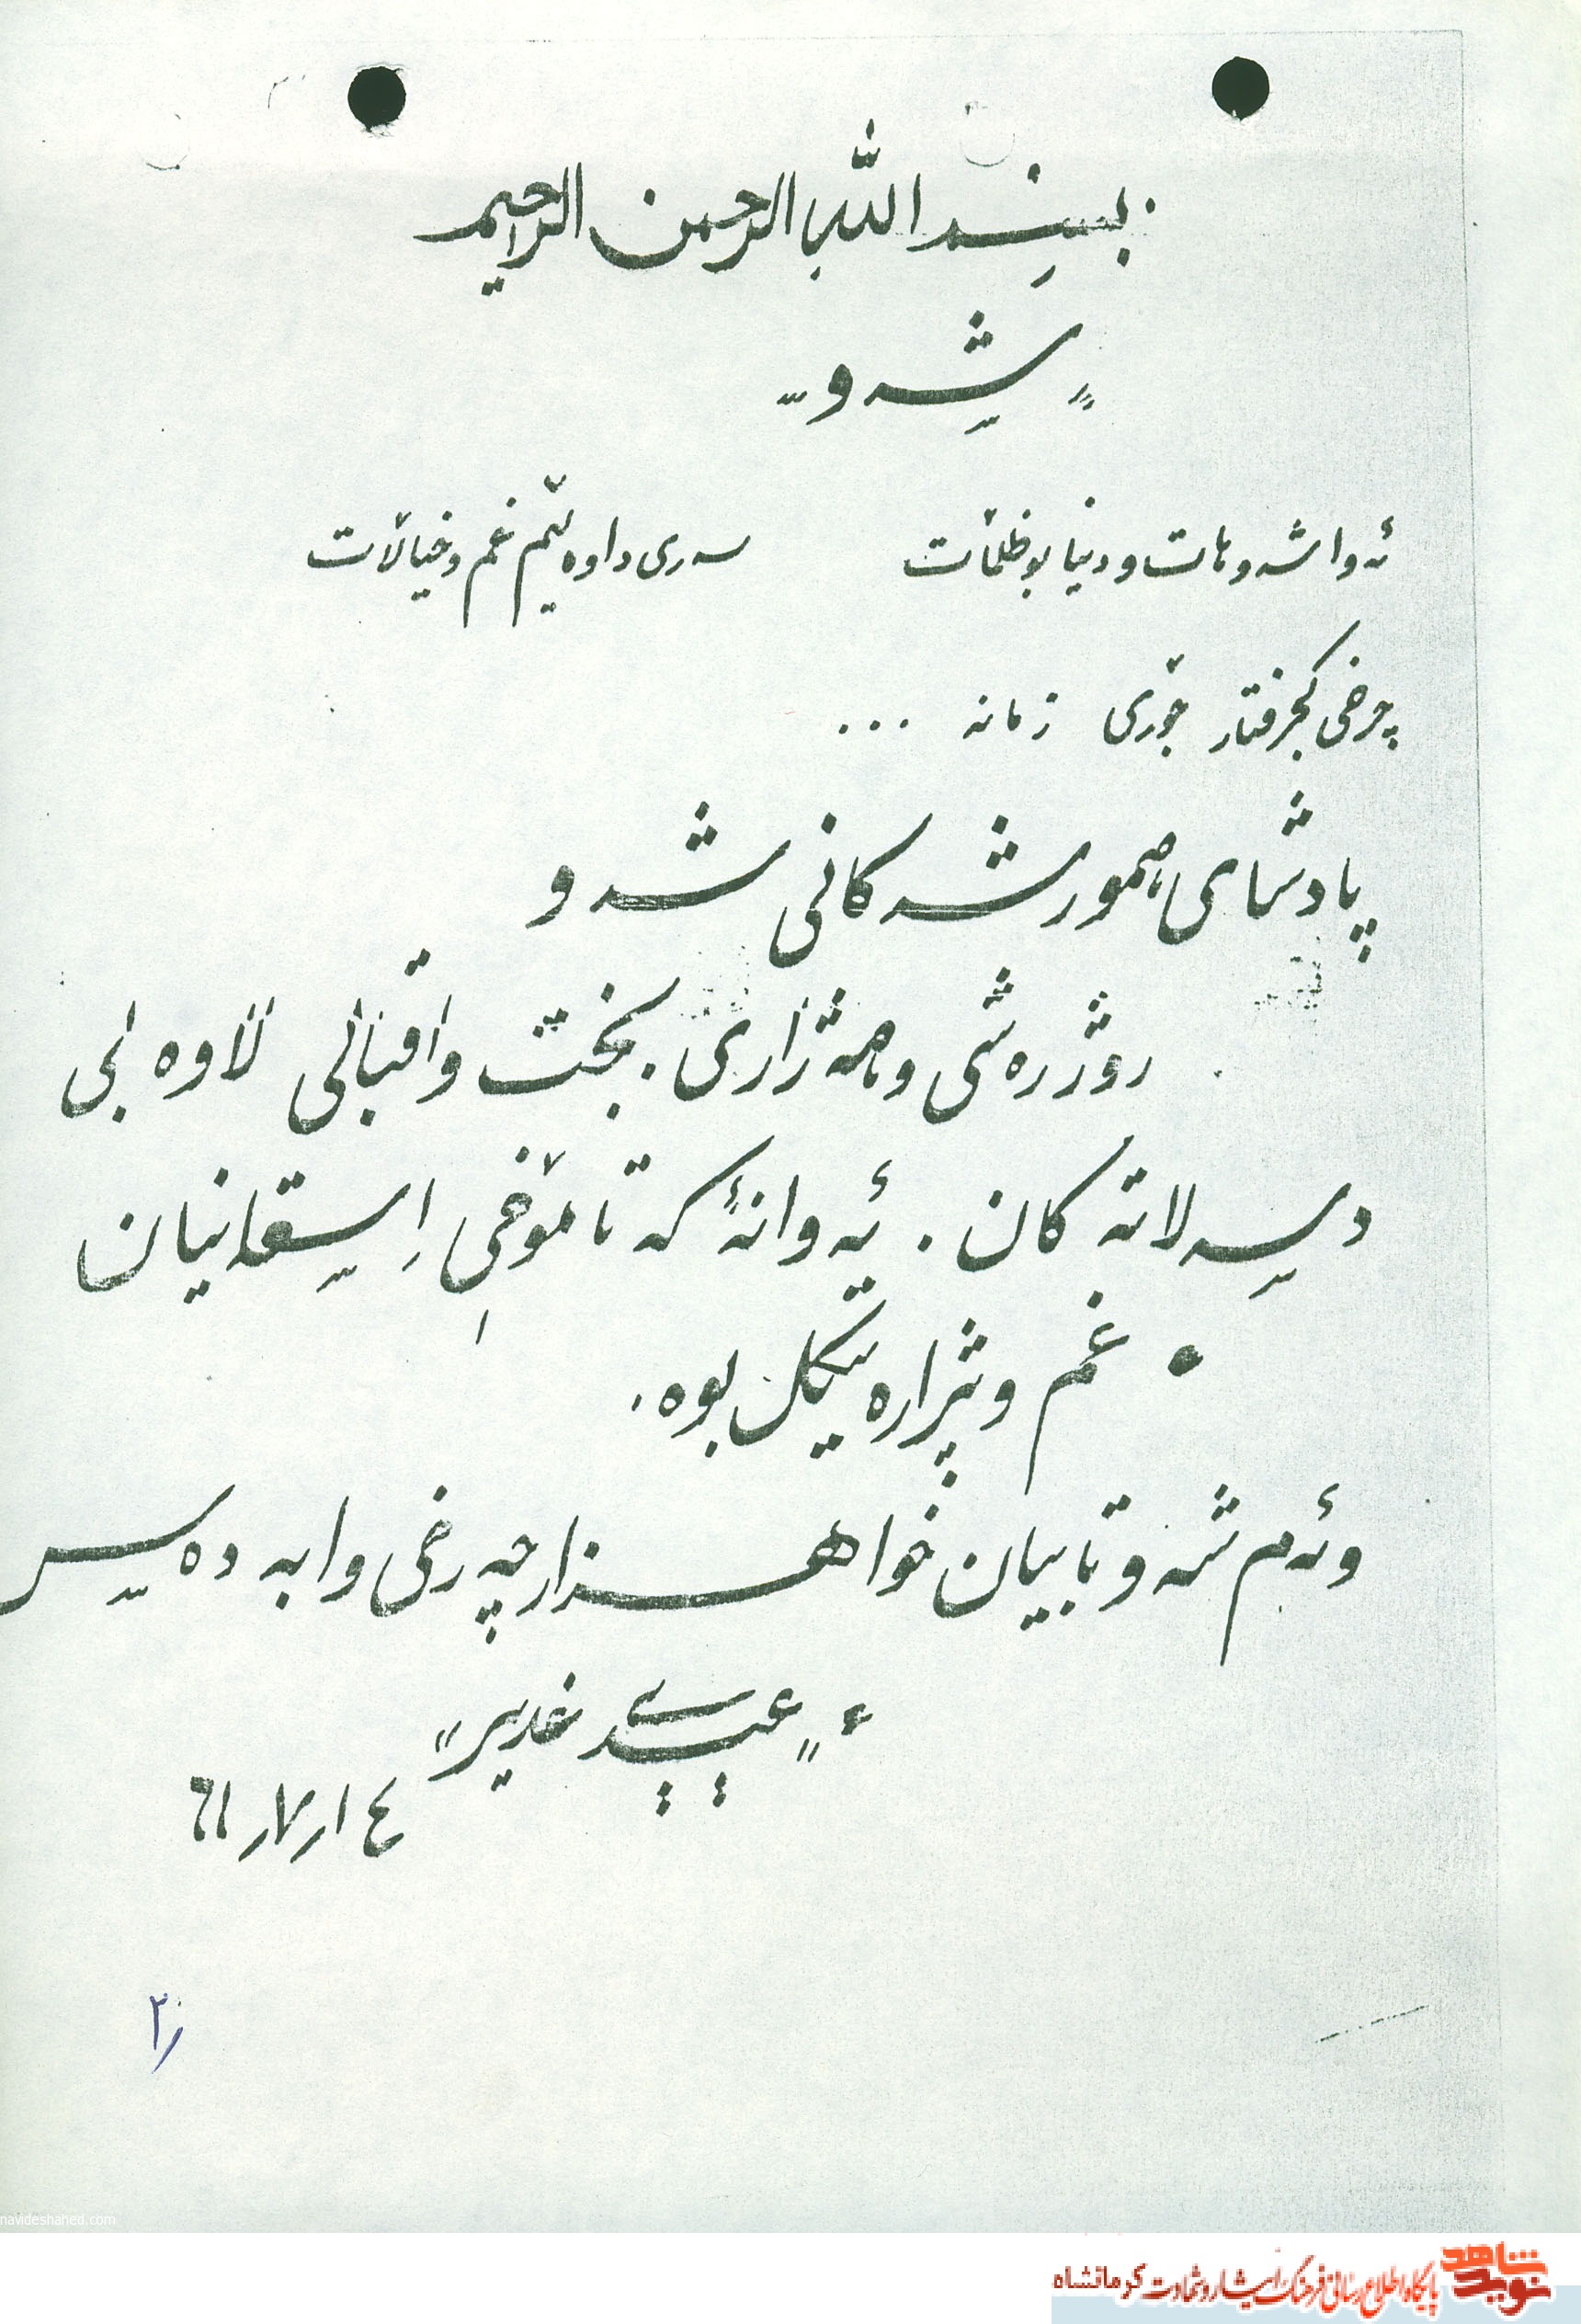 بسم الله الرحمن الرحیم
" شه و "
ئه وا شه و هات و دنیا بو ظلمات سه ری داوه لیم غم و خیالات
چرخی کجرفتار جوری زمانه ...
پادشای همو رشه کانی شه و
روژ ره شی و هه ژاری . بخت و اقبالی لاوه بی
ده سه لاته کان . ئه وانه که تا موخی ایسقانیان
غم و پژاره تیکل بوه .
وئه م شه و تا بیان خوا هه زار چه رخی وا به ده س
" عیسی خدیر "
٦١ر٧ر١٤
٢ر
navideshahed.com
نوید شاهد
پایگاه اطلاع رسانی فرهنگ ایثار و شهادت کرمانشاه